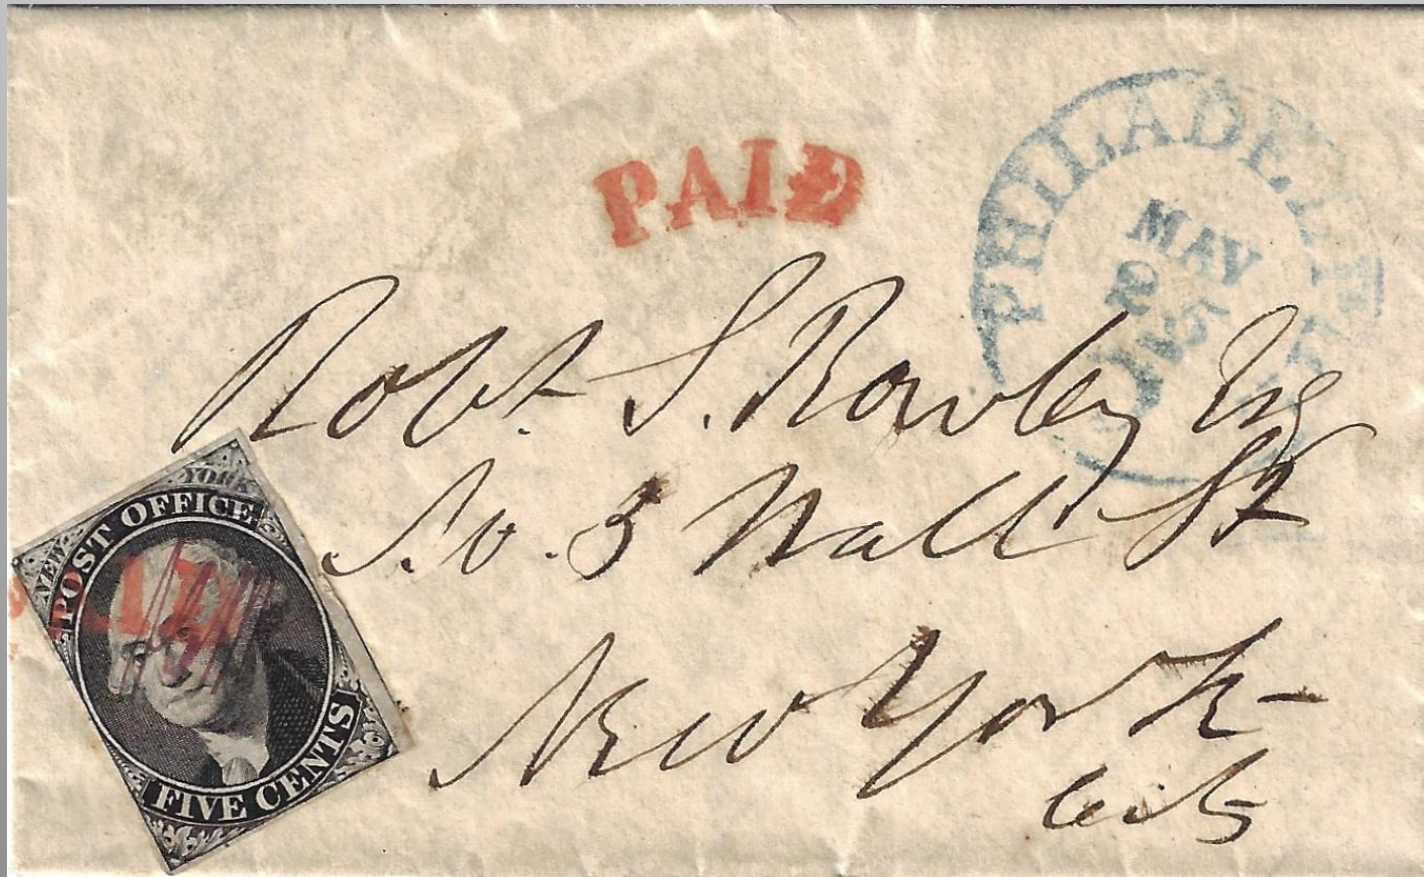 PAID
PHILADELPHIA
MAY
25
Robt. S. Rowley Esq
No. 3 Wall St
New York
City
NEW YORK
POST OFFICE
FIVE CENTS
PAID